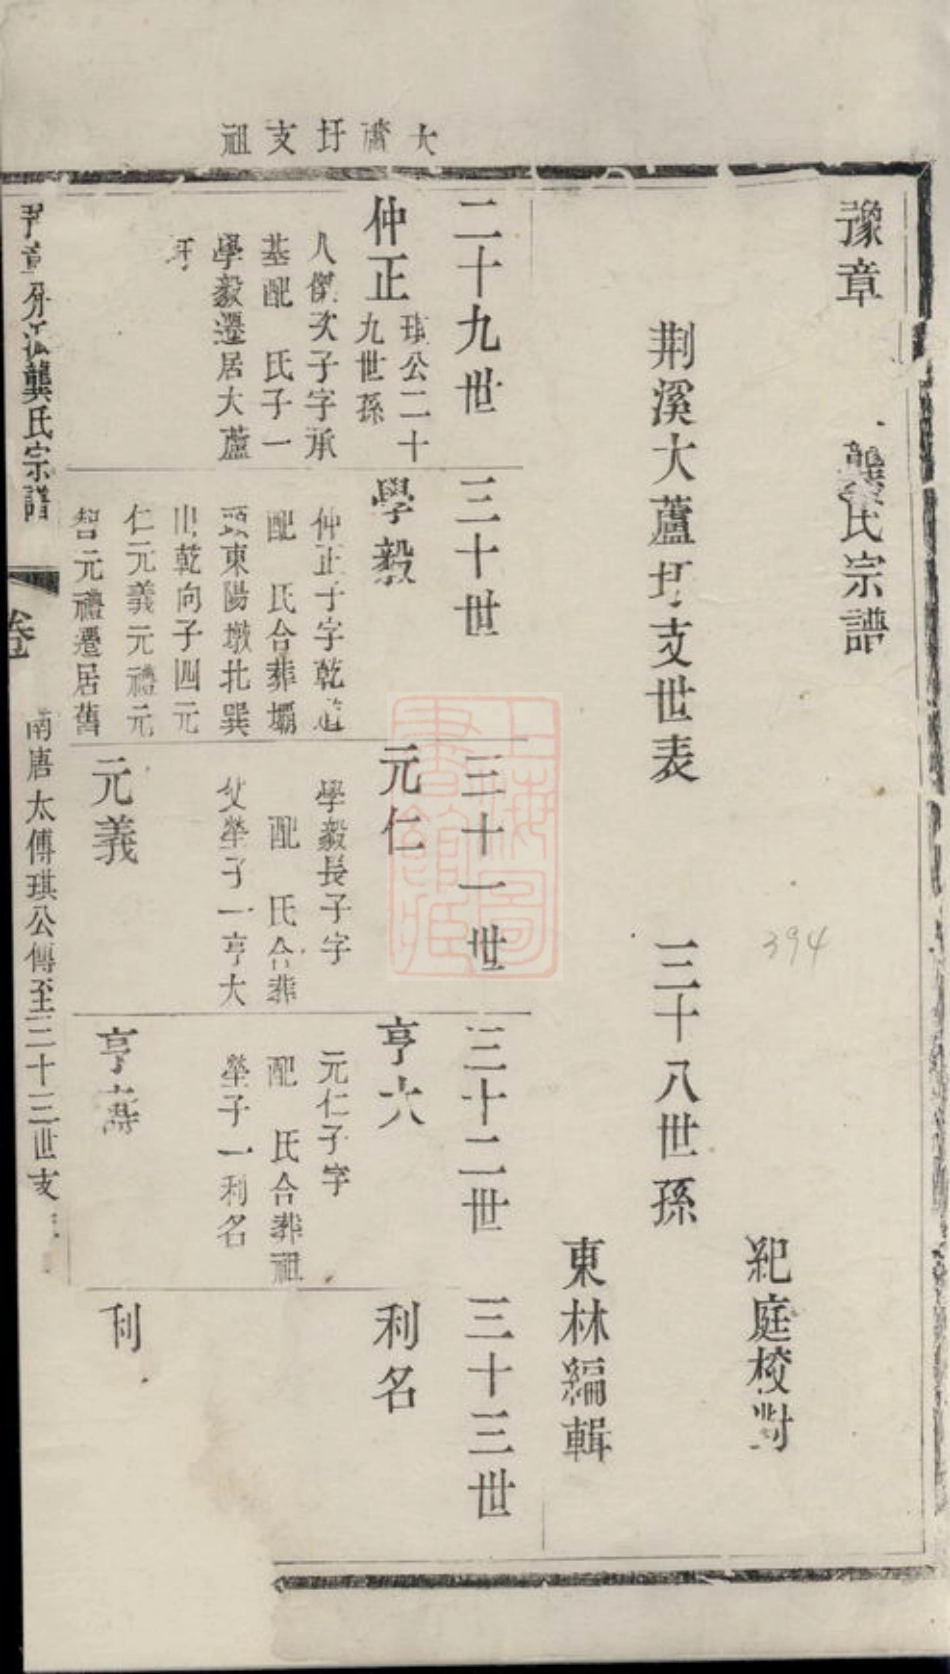 大蘆圩支祖
豫章龔氏宗譜
紀庭校對
荆溪大蘆圩支世表
三十八世孫
東林編輯
二十九世
三十世
三十一世
三十二世
三十三世
仲正
琪公二十
九世孫
人傑次子字承
基配 氏子一
學毅遷居大蘆
圩
學毅
仲正子字乾
配 氏合葬壩
頭東陽墩北巽
山乾向子四元
仁元義元禮元
智元禮遷居舊
元仁
學毅長子字
配 氏合葬
父塋子一亨大
元義
亨六
元仁子字
配 氏合葬祖
塋子一利名
亨
利名
利
豫章分派龔氏宗譜
卷
南唐太傅琪公傳至三十三世支
394
上海圖書館藏